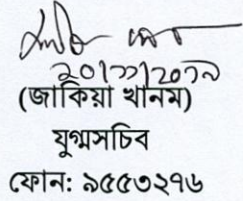 ২০/১১/২০১৯
(জাকিয়া খানম)
যুগ্মসচিব
ফোন: ৯৫৫৩২৭৬